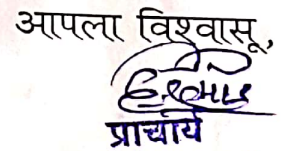 आपला विश्वासू,
प्राचार्य